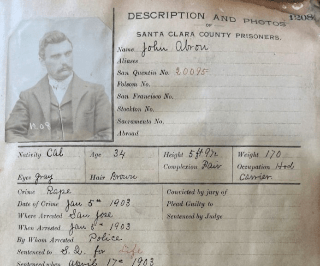 1208
DESCRIPTION AND PHOTOS
OF
SANTA CLARA COUNTY PRISONERS.
Name John Abron
Aliases
San Quentin No. 20095
Folsom No.
San Francisco No.
Stockton No.
Sacramento No.
Abroad
Nativity Cal Age 34 Height 5 ft 9½ Weight 170
Complexion Fair Occupation Hod
Eyes Gray Hair Brown Carrier
Crime Rape Convicted by jury of
Date of Crime Jan 5th 1903 Plead Guilty to
Where Arrested San Jose Sentenced by Judge
When Arrested Jan 6th 1903
By Whom Arrested Police
Sentenced to S.Q. for Life
Sentenced when April 17th 1903